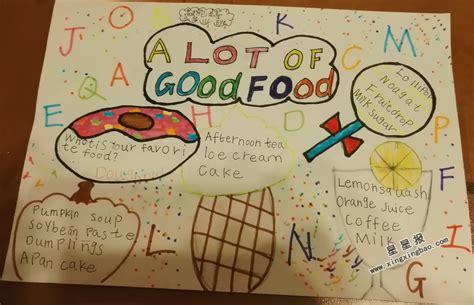 A LOT OF
GOOD FOOD
J
O
B
K
C
M
E
Q
A
H
P
F
D
L
N
G
I
Lollipop
Nougat
Fruitdrop
Milk sugar
What is your favori
te food?
Doughnut
Afternoon tea
Ice cream
Cake
Lemon squash
Orange Juice
Coffee
Milk
Pumpkin soup
Soybein paste
Dumplings
A Pan cake
星星报
www.xingxingbao.com